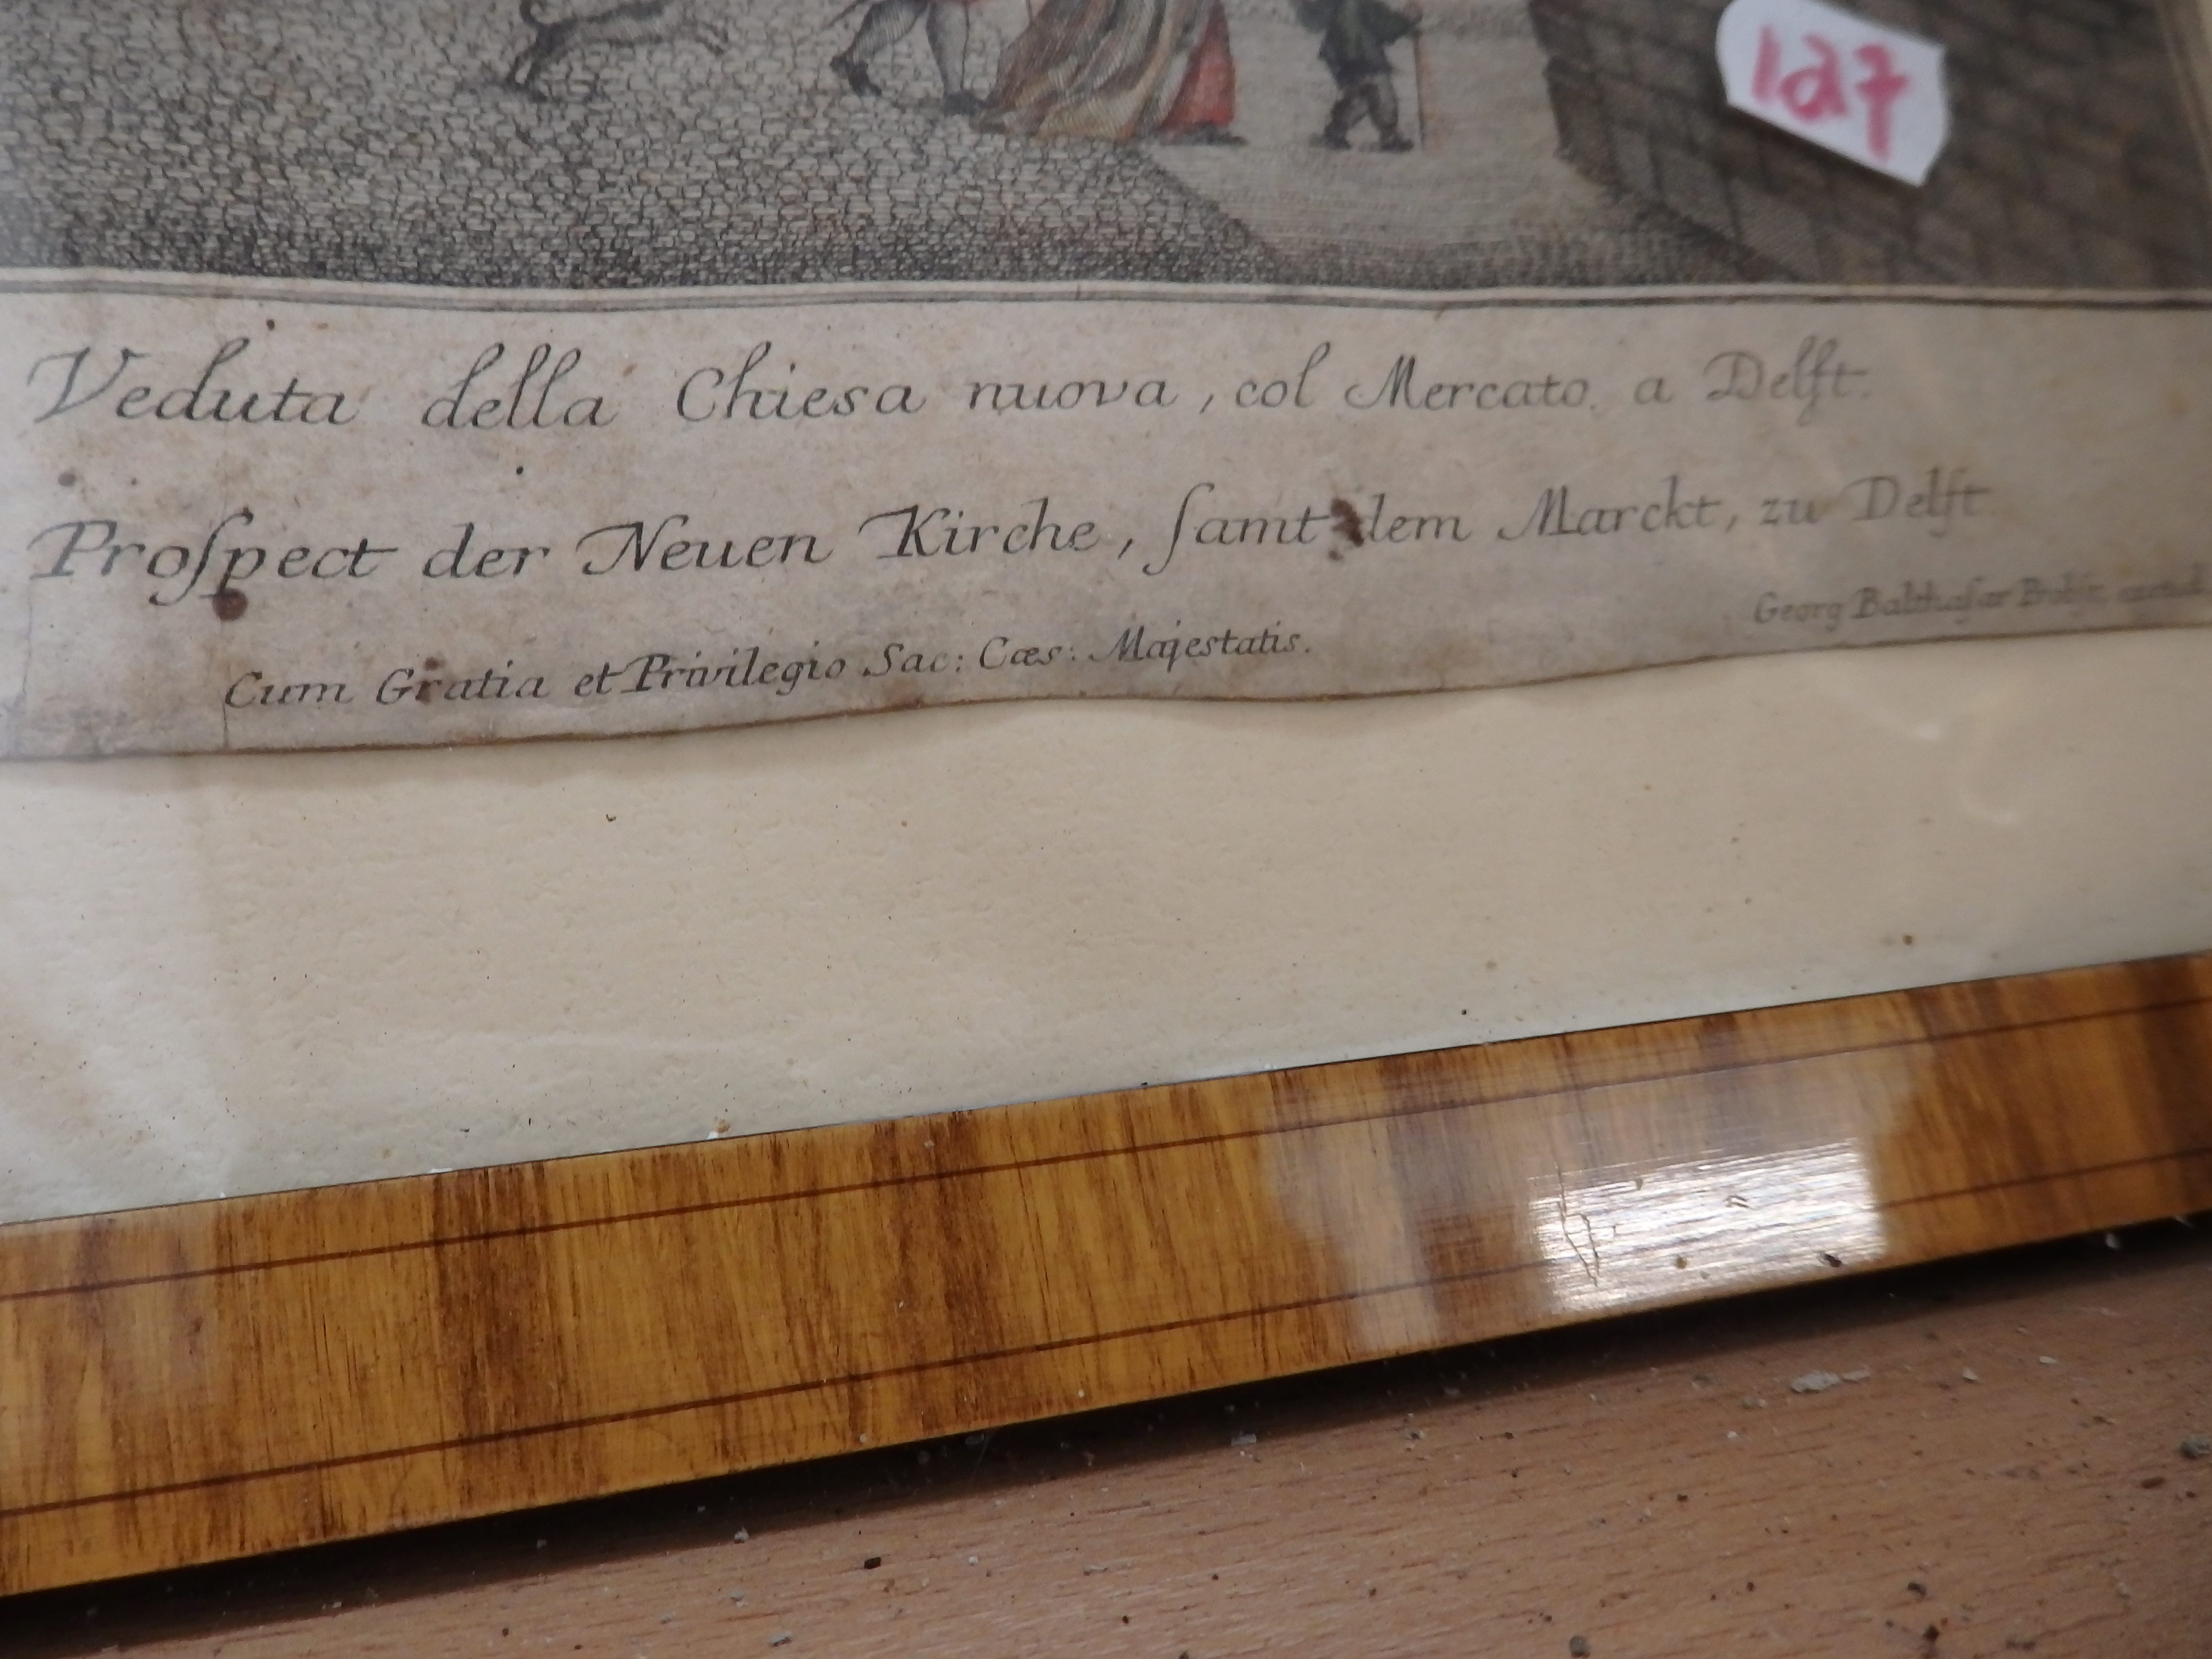 127
Veduta della Chiesa nuova, col Mercato. a Delft.
Proſpect der Neuen Kirche, ſamt dem Marckt, zu Delft
Georg Balthaſar
Cum Gratia et Privilegio Sac: Cæs: Majestatis.